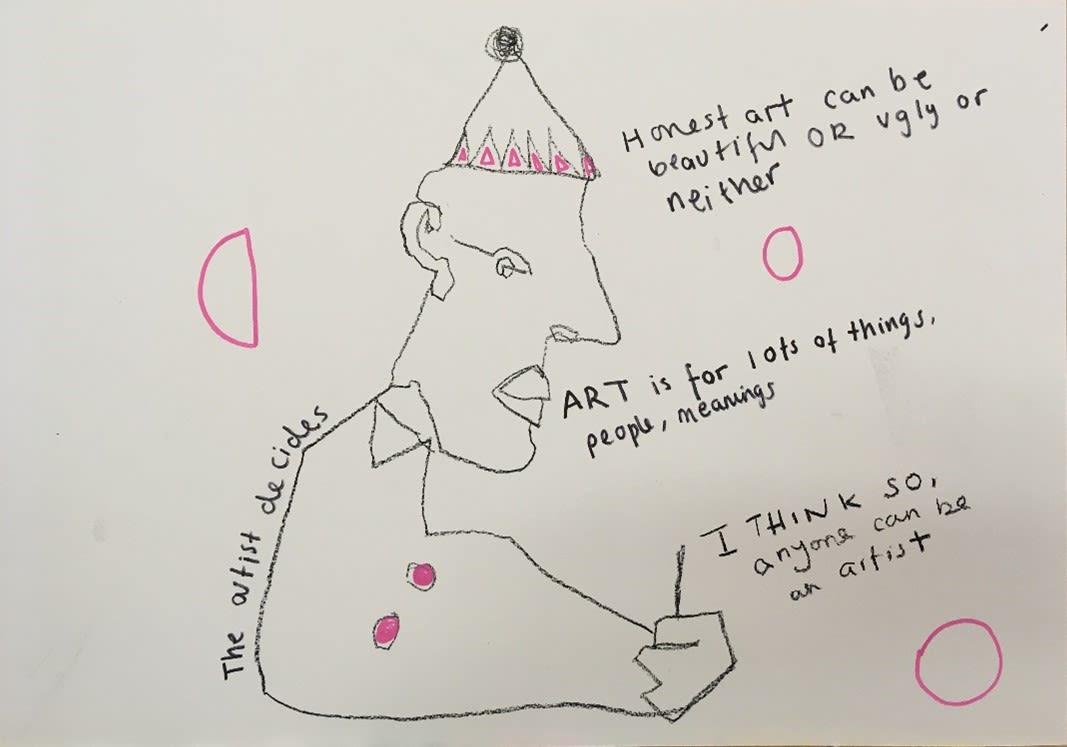 Honest art can be
beautiful OR ugly or
neither
ART is for lots of things,
people, meanings
The artist decides
I THINK SO,
anyone can be
an artist